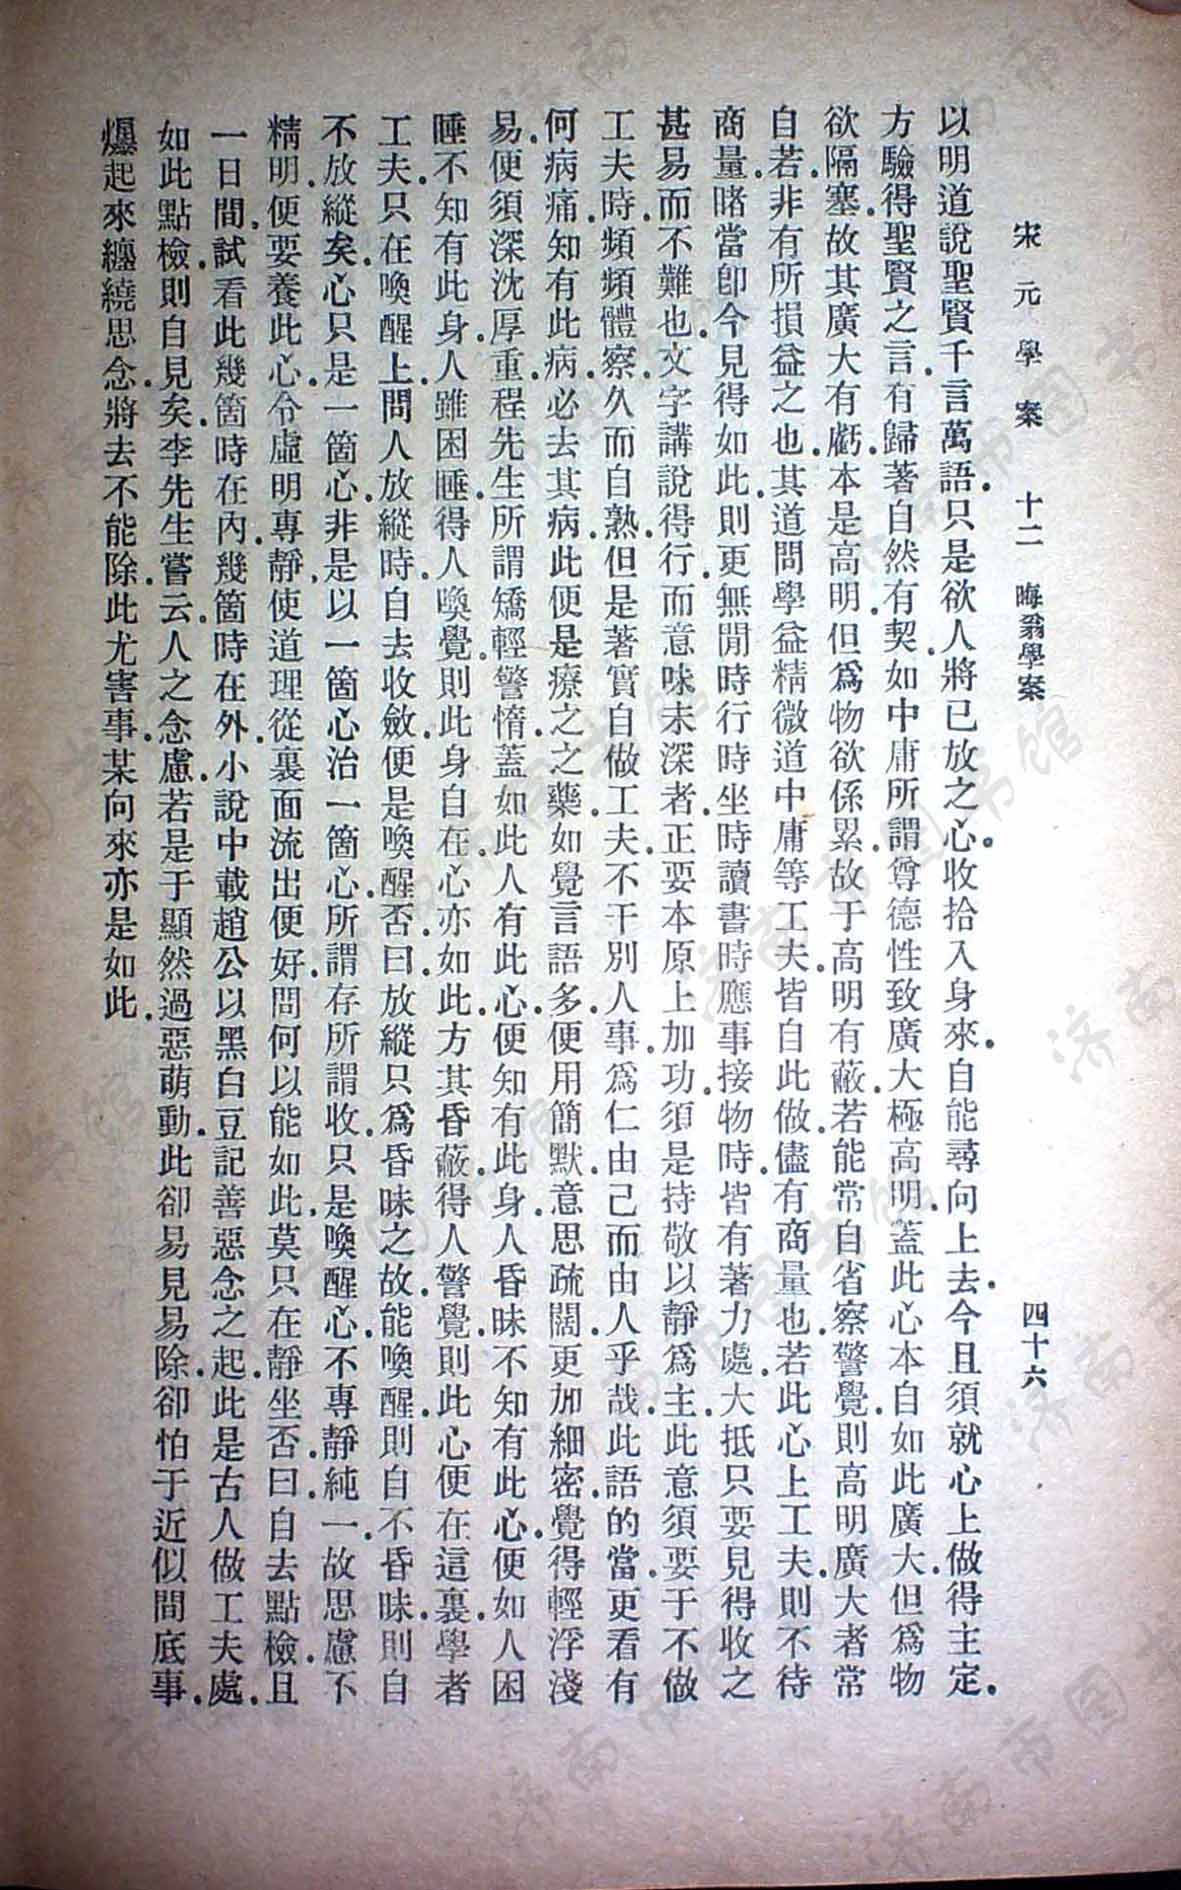 宋元學案 十二 晦翁學案 四十六
以明道說聖賢千言萬語.只是欲人將已放之心收拾入身來.自能尋向上去.今且須就心上做得主定.
方驗得聖賢之言有歸著自然有契.如中庸所謂尊德性致廣大極高明.蓋此心本自如此廣大.但爲物
欲隔塞.故其廣大有虧.本是高明.但爲物欲係累.故于高明有蔽.若能常自省察警覺.則高明廣大者常
自若.非有所損益之也.其道問學益精微道中庸等工夫.皆自此做.儘有商量也.若此心上工夫.則不待
商量.睹當卽今見得如此.則更無閒時行時坐時讀書時應事接物時.皆有著力處.大抵只要見得收之
甚易而不難也.文字講說得行.而意味未深者.正要本原上加功.須是持敬以靜爲主.此意須要于不做
工夫時.頻頻體察.久而自熟.但是著實自做工夫.不干別人事.爲仁由己而由人乎哉.此語的當.更看有
何病痛.知有此病.必去其病.此便是療之之藥.如覺言語多.便用簡默.意思疏闊.更加細密.覺得輕浮淺
易.便須深沈厚重.程先生所謂矯輕警惰.蓋如此.人有此心.便知有此身.人昏昧不知有此心.便如人困
睡不知有此身.人雖困睡.得人喚覺.則此身自在.心亦如此.方其昏蔽.得人警覺.則此心便在這裏.學者
工夫.只在喚醒上.問人放縱時.自去收斂.便是喚醒否.曰.放縱只爲昏昧之故.能喚醒.則自不昏昧.則自
不放縱矣.心只是一箇心.非是以一箇心治一箇心.所謂存所謂收.只是喚醒心.不專靜純一.故思慮不
精明.便要養此心.令虛明專靜.使道理從裏面流出便好.問何以能如此.莫只在靜坐否.曰.自去點檢.且
一日間.試看此幾箇時在內幾箇時在外.小說中載趙公以黑白豆記善惡念之起.此是古人做工夫處.
如此點檢.則自見矣.李先生嘗云.人之念慮.若是于顯然過惡萌動.此卻易見易除.卻怕于近似間底事.
爆起來纏繞思念.將去不能除.此尤害事.某向來亦是如此.